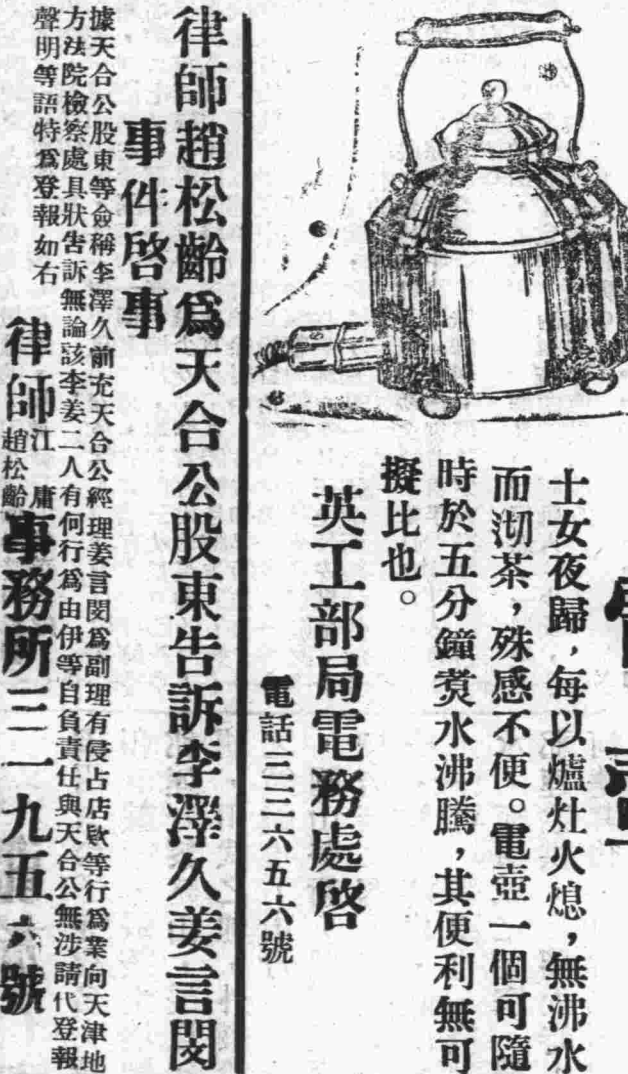 士女夜歸，每以爐灶火熄，無沸水
而沏茶，殊感不便。電壺一個可隨
時於五分鐘煑水沸騰，其便利無可
擬比也。
英工部局電務處啓
電話三三六五六號
律師趙松齡爲天合公股東告訴李澤久姜言閔
事件啓事
據天合公股東等僉稱李澤久前充天合公經理姜言閔爲副理有侵占店欵等行爲業向天津地
方法院檢察處具狀告訴無論該李姜二人有何行爲由伊等自負責任與天合公無涉請代登報
聲明等語特爲登報如右
律師江庸趙松齡事務所三一九五六號